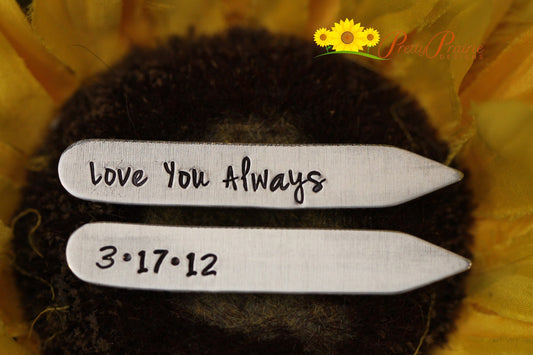 Pretty Prairie
DESIGNS
Love You Always
3•17•12